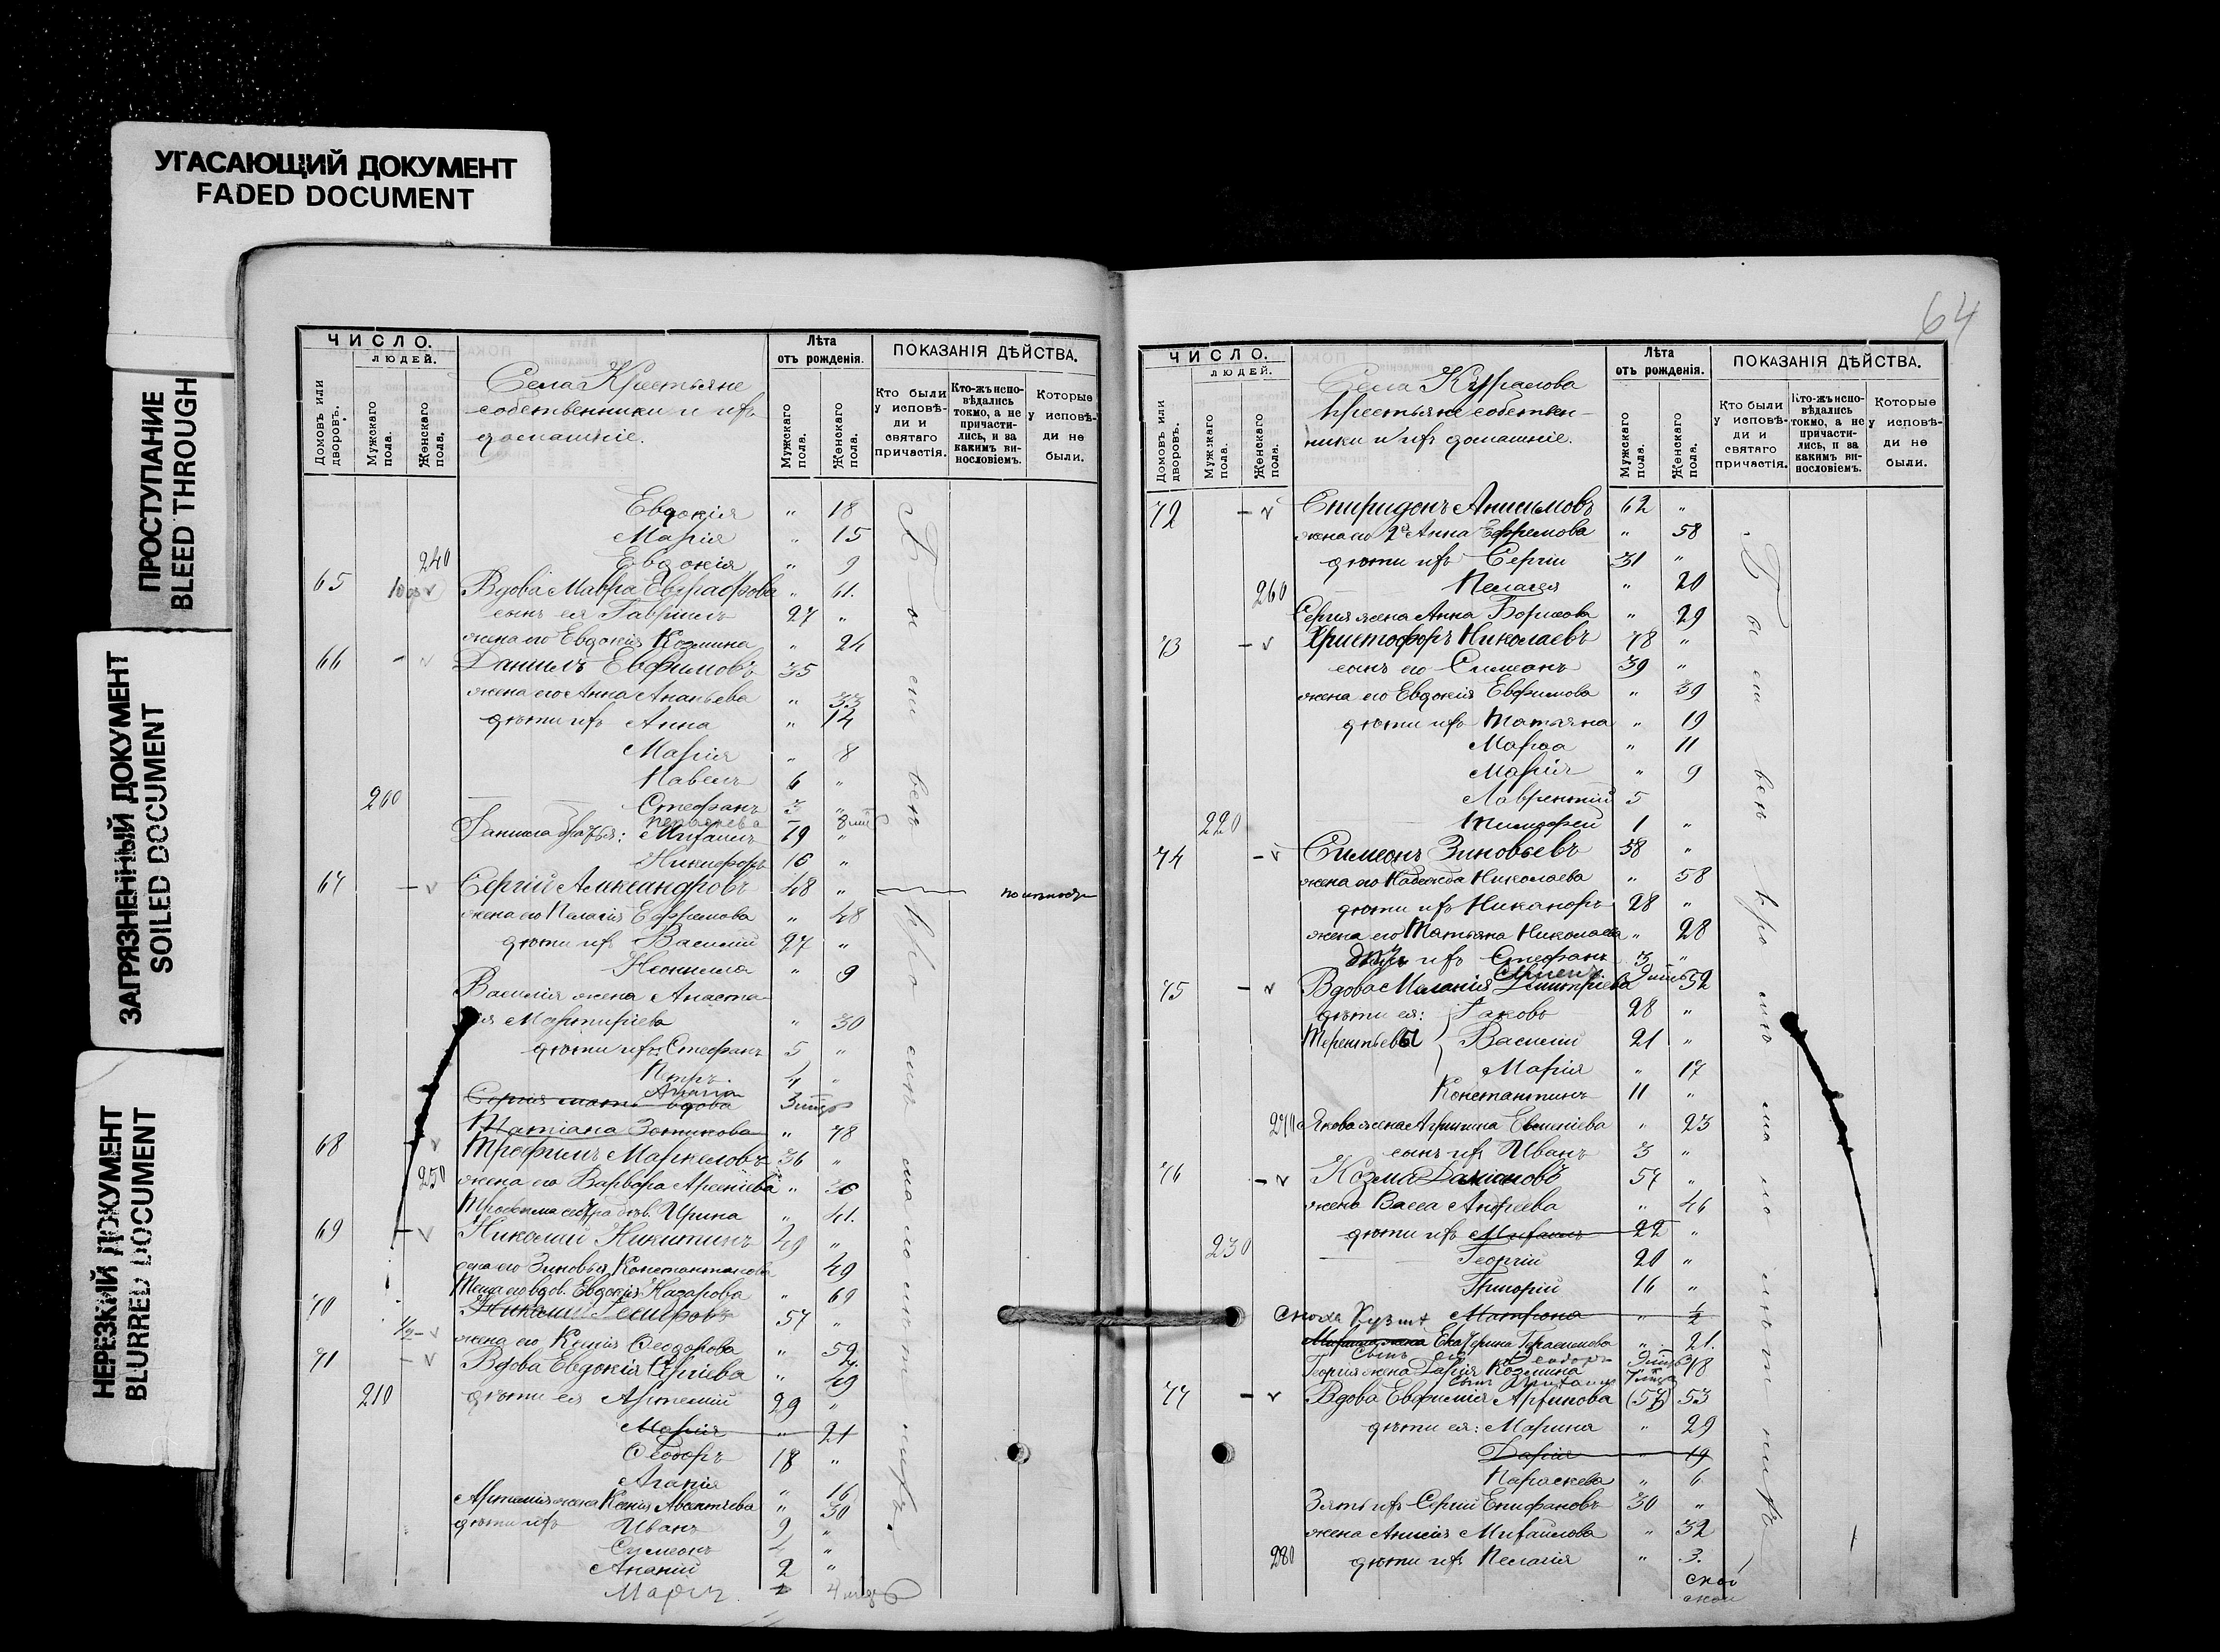 УГАСАЮЩИЙ ДОКУМЕНТ
FADED DOCUMENT
ПРОСТУПАНИЕ
BLEED THROUGH
ЗАГРЯЗНЕННЫЙ ДОКУМЕНТ
SOILED DOCUMENT
НЕРЕЗКИЙ ДОКУМЕНТ
BLURRED DOCUMENT
ЧИСЛО.
ЛЮДЕЙ.
Домовъ или дворовъ.
Мужскаго пола.
Женскаго пола.
Села Крестьяне
собственники и ихъ
домашніе.
Лѣта
отъ рожденія.
Мужскаго пола.
Женскаго пола.
ПОКАЗАНІЯ ДѢЙСТВА.
Кто были у исповѣди и святаго причастія.
Кто-жъ исповѣдались токмо, а не причастились, и за какимъ винословіемъ.
Которые у исповѣди не были.
Евдокія " 18
Марія " 15
240 Евдокія " 9
65 Вдова Мавра Евграфова " 61.
сынъ ея Гавріилъ 27 "
жена его Евдокія Козмина " 24
66 - v Даніилъ Евфимовъ 35
жена его Анна Ананьева " 33
дѣти ихъ Анна " 14
Марія " 8
Павелъ 6 "
200 Стефанъ 3 "
Даніила братья: Михаилъ 19 "
Никифоръ 16 "
67 - v Сергій Александровъ 48 "
жена его Пелагія Ефремова " 48
дѣти ихъ Василій 27 "
Неонилла " 9
Василія жена Анаста-
ія Мартиріева " 30
дѣти ихъ: Стефанъ 5 "
Петръ 4 "
Сергія мать вдова
Татіана Зотикова " 78
68 - v Трофимъ Маркеловъ 36 "
250 жена его Варвара Арсеніева " 36
Трофима сестра Ирина " 41.
69 - v Николай Никитинъ 49 "
жена его Зиновья Константинова 49
Теща его вдов. Евдокія Назарова " 69
70 Николай 57 "
жена его Ксенія Ѳеодорова " 59
71 - v Вдова Евдокія Сергіева " 49
210 дѣти ея Артемій 29 "
Марія " 21
Ѳеодоръ 18 "
Агапія " 16
Артемія жена Ксенія " 30
дѣти ихъ Иванъ 9 "
Симеонъ 4 "
Ананій 2 "
64
ЧИСЛО.
ЛЮДЕЙ.
Домовъ или дворовъ.
Мужскаго пола.
Женскаго пола.
Села Курапова
Крестьяне собствен-
ники и ихъ домашніе.
Лѣта
отъ рожденія.
Мужскаго пола.
Женскаго пола.
ПОКАЗАНІЯ ДѢЙСТВА.
Кто были у исповѣди и святаго причастія.
Кто-жъ исповѣдались токмо, а не причастились, и за какимъ винословіемъ.
Которые у исповѣди не были.
72 - v Спиридонъ Анисимовъ 62 "
жена его 2я Анна Ефремова " 58
дѣти ихъ Сергій 31 "
260 Пелагія " 20
Сергія жена Анна Борисова " 29
73 - v Христофоръ Николаевъ 78 "
сынъ его Симеонъ 39 "
жена его Евдокія Евфимова " 39
дѣти ихъ Татьяна " 19
Марѳа " 11
Марія " 9
Лаврентій 5
220 Тимофей 1 "
74 - v Симеонъ Зиновьевъ 58 "
жена его Надежда Николаева " 58
дѣти ихъ Никаноръ 28 "
жена его Татьяна Николаева " 28
дѣти ихъ Стефанъ 3 "
75 - v Вдова Меланія Димитріева 52
дѣти ея: Іаковъ 28 "
Терентьевы Василій 21 "
Марія " 17
Константинъ 11 "
270 Якова жена Агрипина " 23
сынъ ихъ Иванъ 3 "
76 - v Козма Даміановъ 57 "
жена Васса Андреева " 46
дѣти ихъ Михаилъ 22 "
230 Георгій 20 "
Григорій 16 "
Матрона " 1/2
Екатерина Герасимова " 21.
Георгія жена Дарія Козмина 18
77 - v Вдова Евфимія (57) 53
дѣти ея: Марина " 29
Дарія " 19
Параскева " 6
Зять ихъ Сергій Епифановъ 30 "
жена Анисія Михайлова " 32
280 дѣти ихъ Пелагія " 3.